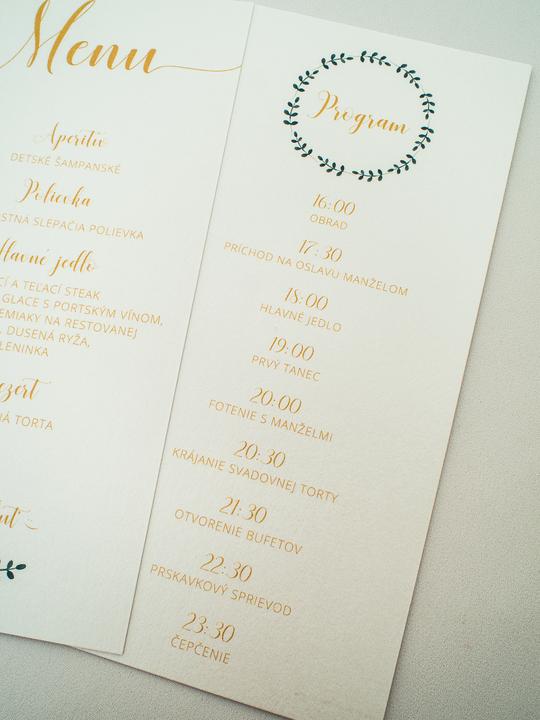 Menu
Aperitív
DETSKÉ ŠAMPANSKÉ
Polievka
SLEPAČIA POLIEVKA
Hlavné jedlo
A TEĽACÍ STEAK
GLACE S PORTSKÝM VÍNOM,
NA RESTOVANEJ
DUSENÁ RYŽA,
TORTA
Program
16:00
OBRAD
17:30
PRÍCHOD NA OSLAVU MANŽELOM
18:00
HLAVNÉ JEDLO
19:00
PRVÝ TANEC
20:00
FOTENIE S MANŽELMI
20:30
KRÁJANIE SVADOVNEJ TORTY
21:30
OTVORENIE BUFETOV
22:30
PRSKAVKOVÝ SPRIEVOD
23:30
ČEPČENIE